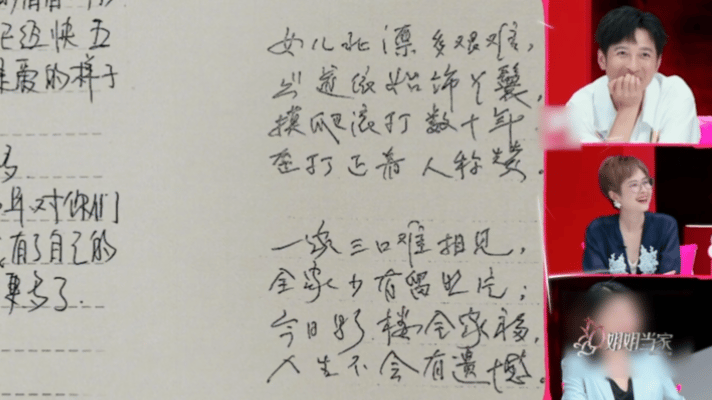 已经快五
爱的样子
多
年对你们
有了自己的
更多了.
女儿北漂多艰难,
出道依始饰丫鬟,
摸爬滚打数十年,
在打正着人称赞.
一家三口难相见,
全家少有留照片;
今日好楼全家福,
人生不会有遗憾.
姐姐当家